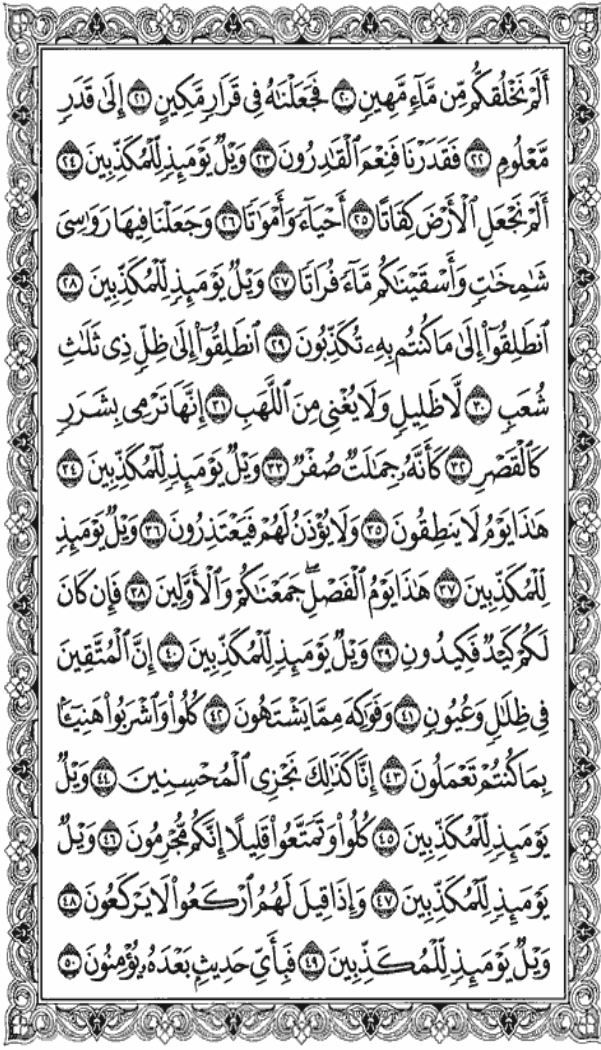 أَلَمْ نَخْلُقكُّم مِّن مَّآءٍ مَّهِينٍ ٢٠ فَجَعَلْنَاهُ فِى قَرَارٍ مَّكِينٍ ٢١ إِلَىٰ قَدَرٍ
مَّعْلُومٍ ٢٢ فَقَدَرْنَا فَنِعْمَ ٱلْقَادِرُونَ ٢٣ وَيْلٌ يَوْمَئِذٍ لِّلْمُكَذِّبِينَ ٢٤
أَلَمْ نَجْعَلِ ٱلْأَرْضَ كِفَاتًا ٢٥ أَحْيَآءً وَأَمْوَاتًا ٢٦ وَجَعَلْنَا فِيهَا رَوَاسِىَ
شَامِخَاتٍ وَأَسْقَيْنَاكُم مَّآءً فُرَاتًا ٢٧ وَيْلٌ يَوْمَئِذٍ لِّلْمُكَذِّبِينَ ٢٨
ٱنطَلِقُوٓا۟ إِلَىٰ مَا كُنتُم بِهِۦ تُكَذِّبُونَ ٢٩ ٱنطَلِقُوٓا۟ إِلَىٰ ظِلٍّ ذِى ثَلَاثِ
شُعَبٍ ٣٠ لَّا ظَلِيلٍ وَلَا يُغْنِى مِنَ ٱللَّهَبِ ٣١ إِنَّهَا تَرْمِى بِشَرَرٍ
كَٱلْقَصْرِ ٣٢ كَأَنَّهُۥ جِمَالَتٌ صُفْرٌ ٣٣ وَيْلٌ يَوْمَئِذٍ لِّلْمُكَذِّبِينَ ٣٤
هَاذَا يَوْمُ لَا يَنطِقُونَ ٣٥ وَلَا يُؤْذَنُ لَهُمْ فَيَعْتَذِرُونَ ٣٦ وَيْلٌ يَوْمَئِذٍ
لِّلْمُكَذِّبِينَ ٣٧ هَاذَا يَوْمُ ٱلْفَصْلِ ۖ جَمَعْنَاكُمْ وَٱلْأَوَّلِينَ ٣٨ فَإِن كَانَ
لَكُمْ كَيْدٌ فَكِيدُونِ ٣٩ وَيْلٌ يَوْمَئِذٍ لِّلْمُكَذِّبِينَ ٤٠ إِنَّ ٱلْمُتَّقِينَ
فِى ظِلَالٍ وَعُيُونٍ ٤١ وَفَوَاكِهَ مِمَّا يَشْتَهُونَ ٤٢ كُلُوا۟ وَٱشْرَبُوا۟ هَنِيٓـًٔا
بِمَا كُنتُمْ تَعْمَلُونَ ٤٣ إِنَّا كَذَالِكَ نَجْزِى ٱلْمُحْسِنِينَ ٤٤ وَيْلٌ
يَوْمَئِذٍ لِّلْمُكَذِّبِينَ ٤٥ كُلُوا۟ وَتَمَتَّعُوا۟ قَلِيلًا إِنَّكُم مُّجْرِمُونَ ٤٦ وَيْلٌ
يَوْمَئِذٍ لِّلْمُكَذِّبِينَ ٤٧ وَإِذَا قِيلَ لَهُمُ ٱرْكَعُوا۟ لَا يَرْكَعُونَ ٤٨
وَيْلٌ يَوْمَئِذٍ لِّلْمُكَذِّبِينَ ٤٩ فَبِأَىِّ حَدِيثٍ بَعْدَهُۥ يُؤْمِنُونَ ٥٠